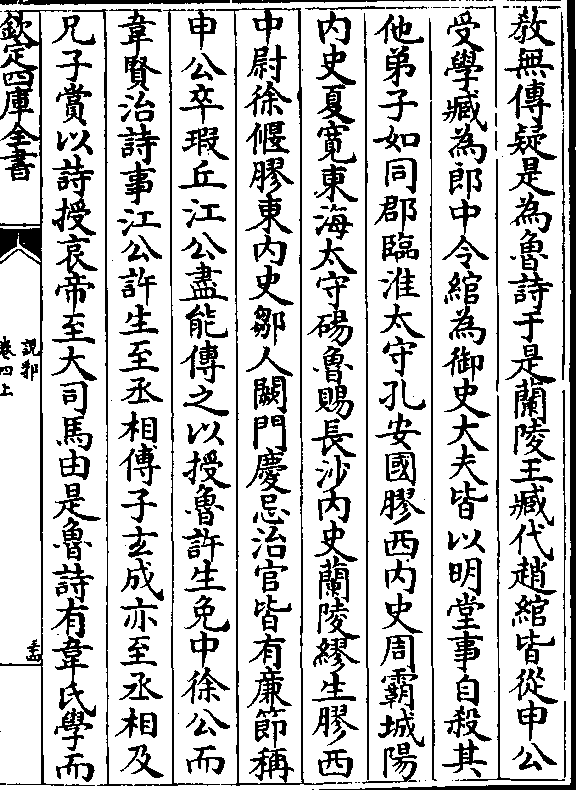 教無傳疑是為魯詩于是蘭陵王臧代趙綰皆從申公
受學臧為郎中令綰為御史大夫皆以明堂事自殺其
他弟子如同郡臨淮太守孔安國膠西内史周霸城陽
内史夏寛東海太守碭魯賜長沙内史蘭陵繆生膠西
中尉徐偃膠東内史鄒人闕門慶忌治官皆有廉節稱
申公卒瑕丘江公盡能傳之以授魯許生免中徐公而
韋賢治詩事江公許生至丞相傳子玄成亦至丞相及
兄子賞以詩授哀帝至大司馬由是魯詩有韋氏學而
欽定四庫全書
説郛
卷四上